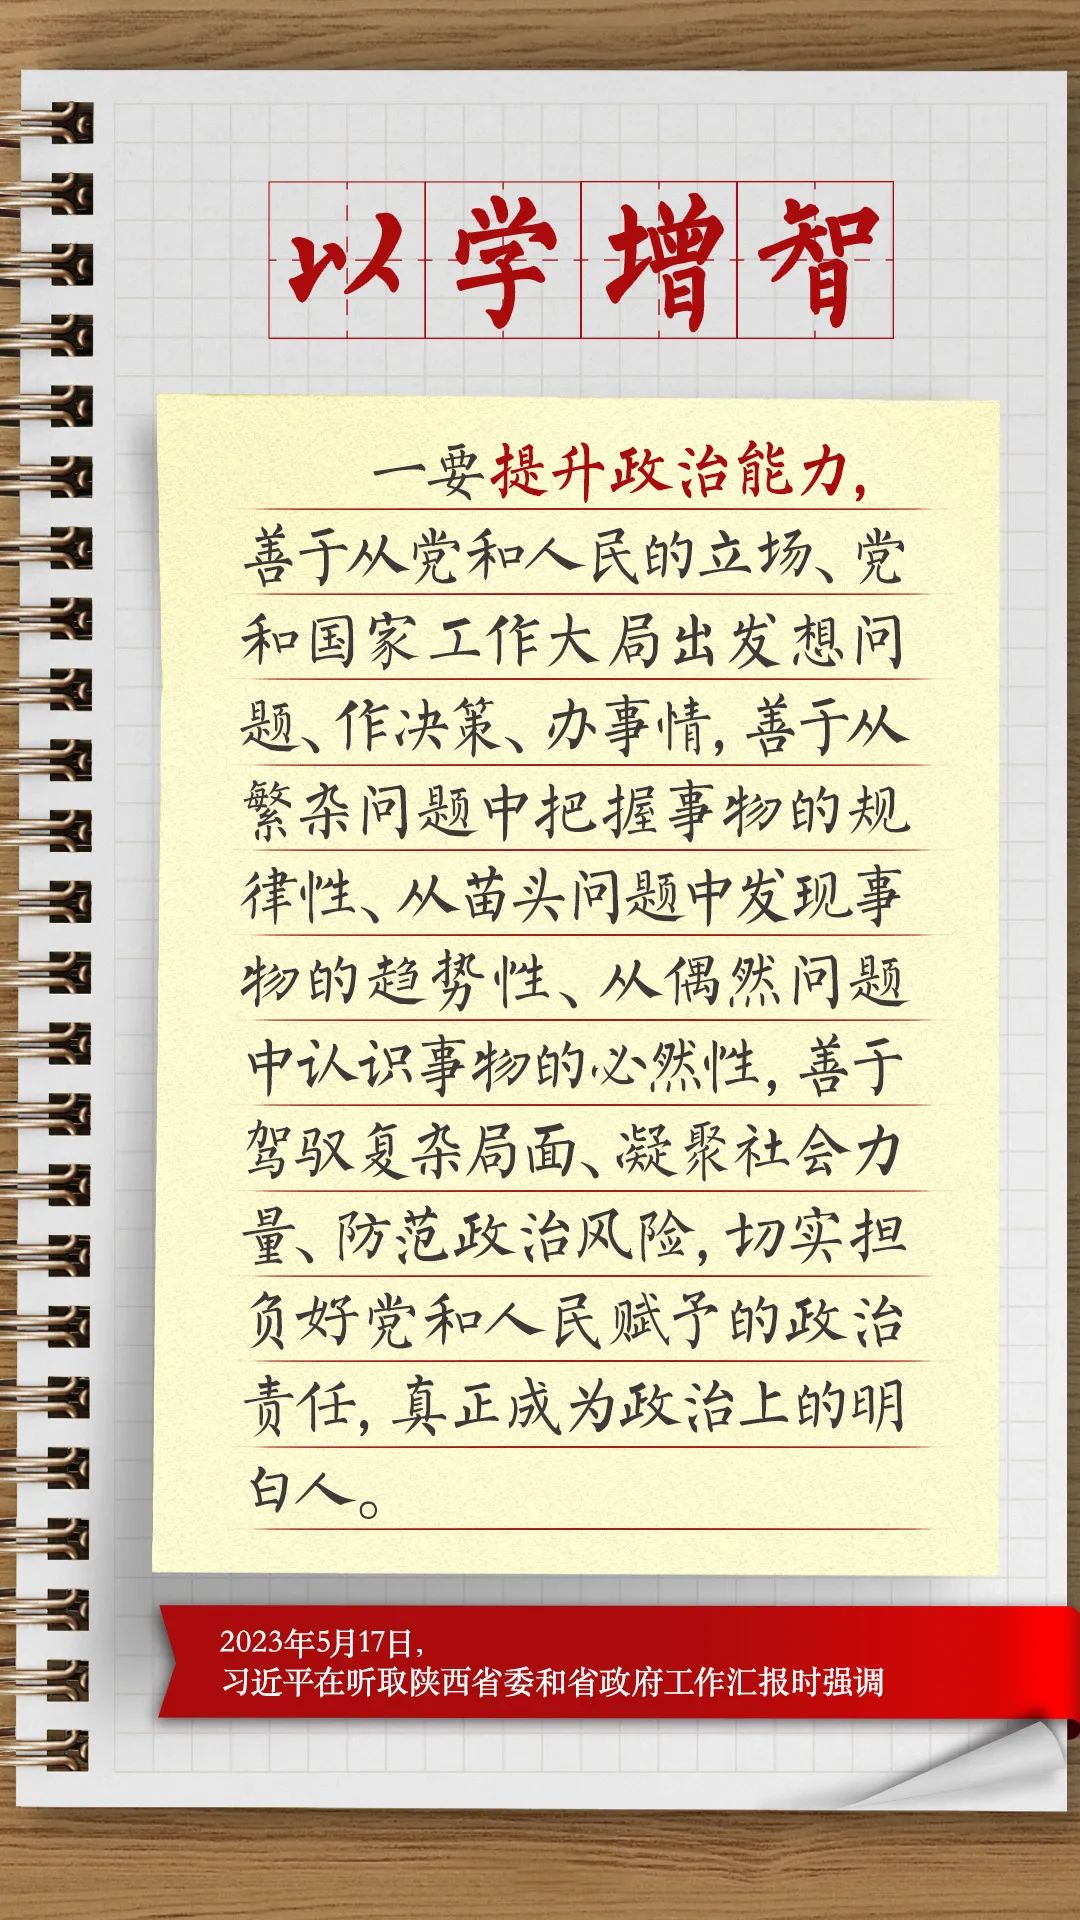 以学增智
一要提升政治能力，
善于从党和人民的立场、党
和国家工作大局出发想问
题、作决策、办事情，善于从
繁杂问题中把握事物的规
律性、从苗头问题中发现事
物的趋势性、从偶然问题
中认识事物的必然性，善于
驾驭复杂局面、凝聚社会力
量、防范政治风险，切实担
负好党和人民赋予的政治
责任，真正成为政治上的明
白人。
2023年5月17日，
习近平在听取陕西省委和省政府工作汇报时强调